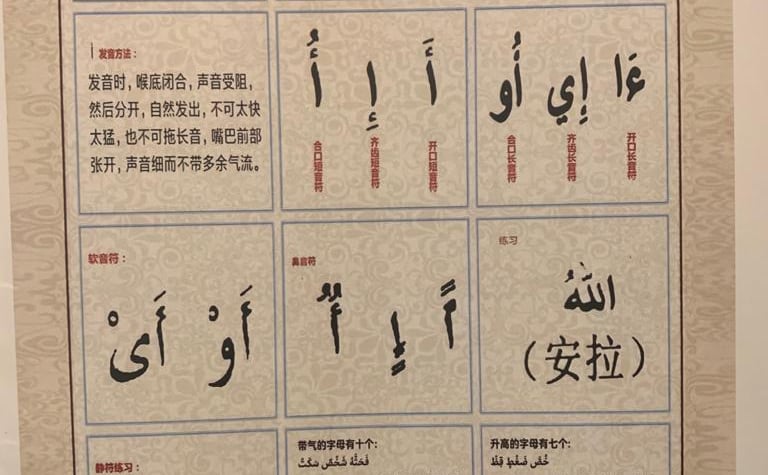 发音方法：
发音时，喉底闭合，声音受阻，
然后分开，自然发出，不可太快
太猛，也不可拖长音，嘴巴前部
张开，声音细而不带多余气流。
أَ إِ أُ
开口短音符
齐齿短音符
合口短音符
ءَا إِي أُو
开口长音符
齐齿长音符
合口长音符
软音符：
أَوْ أَىْ
鼻音符
أً إٍ أٌ
练习
اللّٰهُ
（安拉）
静符练习：
带气的字母有十个：
فَحَثَّهُ شَخْصٌ سَكَتَ
升高的字母有七个：
خُصَّ ضَغْطٍ قِظْ